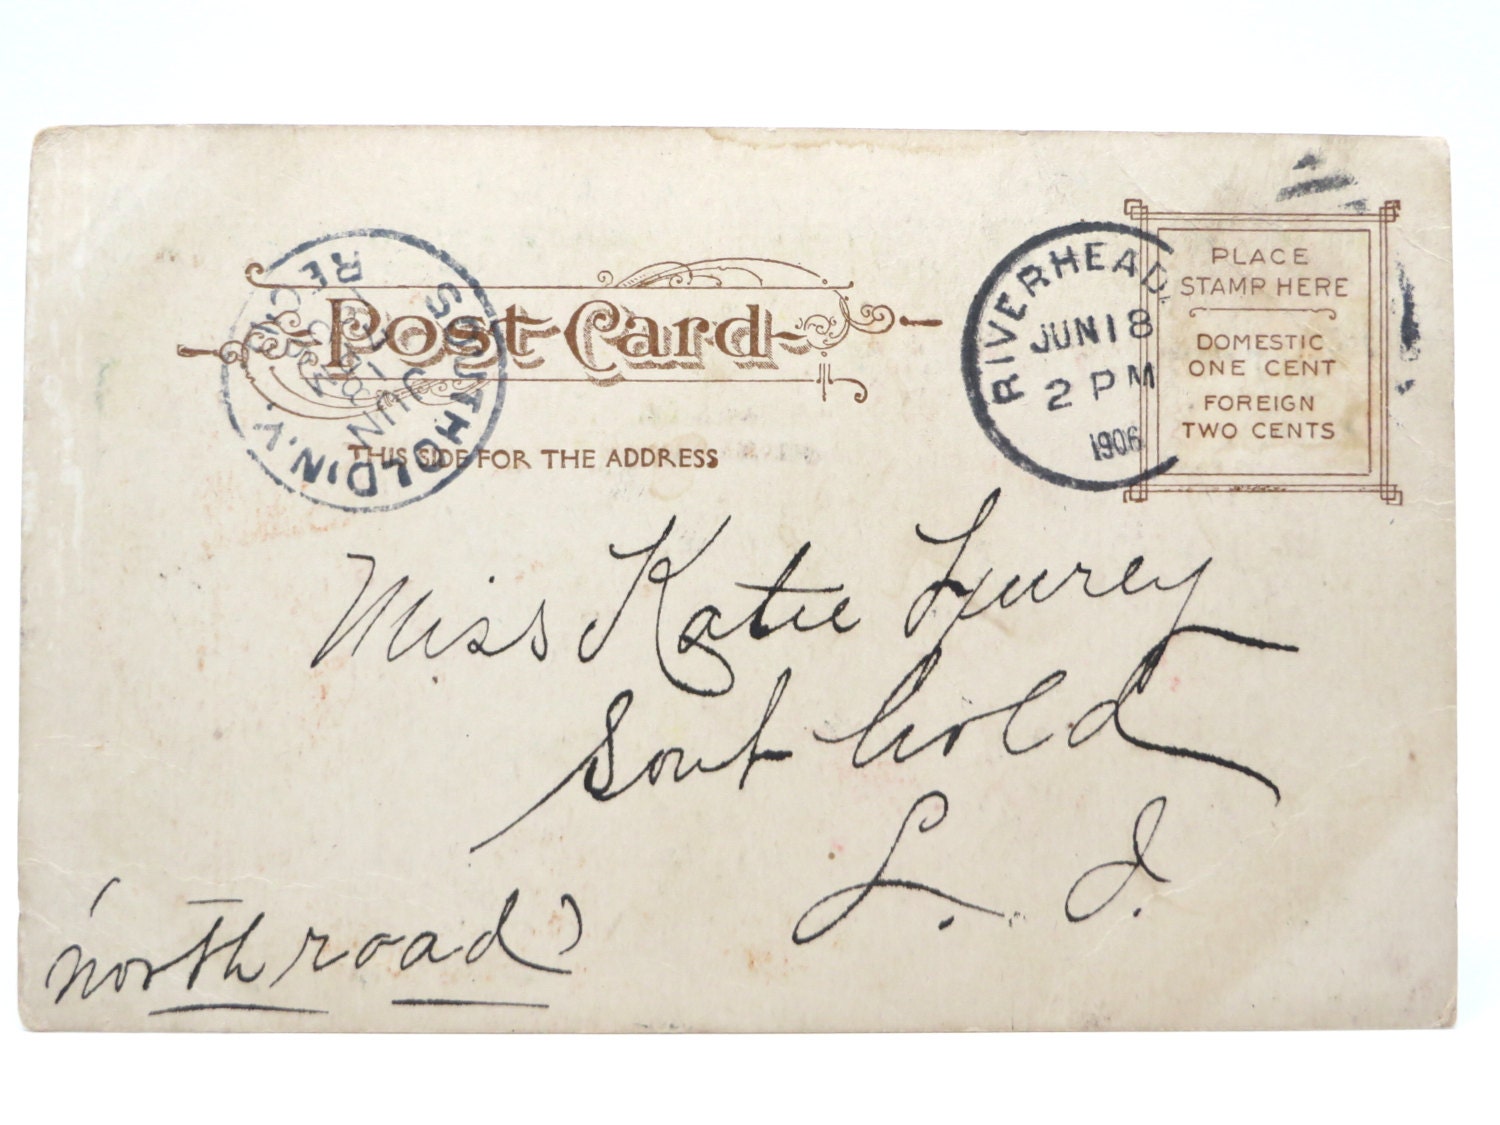 Post Card
THIS SIDE FOR THE ADDRESS
SOUTHOLD, N.Y.
REC'D
JUN
RIVERHEAD
JUN 18
2 PM
1906
PLACE
STAMP HERE
DOMESTIC
ONE CENT
FOREIGN
TWO CENTS
Miss Katie
South hold
L. I.
(north road)